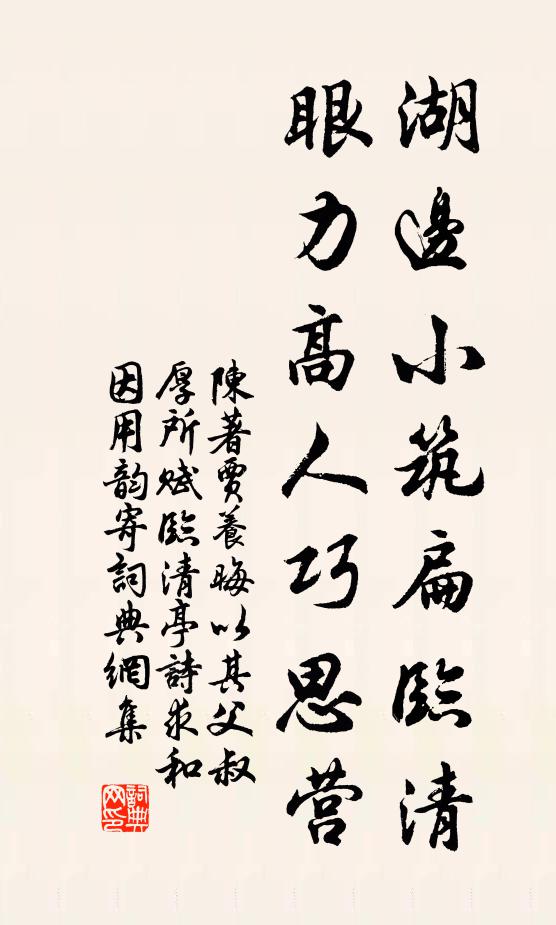 湖邊小筑扁臨清
眼力高人巧思营
陳著賈養晦以其父叔
厚所賦臨清亭詩求和
因用韵寄詞典網集
詞典
网印